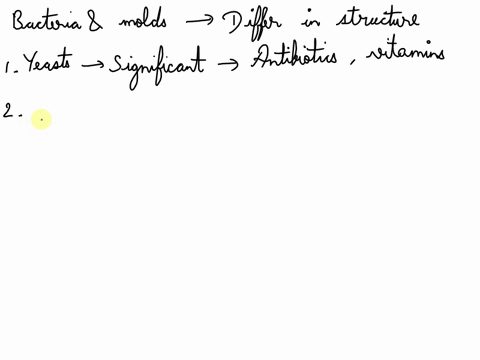 Bacteria & molds → Differ in structure
1. Yeasts → Significant → Antibiotics, vitamins
2.